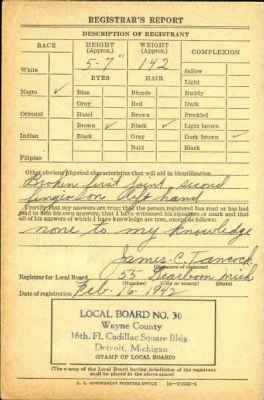 REGISTRAR'S REPORT
DESCRIPTION OF REGISTRANT
RACE HEIGHT (Approx.) WEIGHT (Approx.) COMPLEXION
5-7" 142
White Sallow
EYES HAIR Light
Negro ✓ Blue Blonde Ruddy
Gray Red Dark
Oriental Hazel Brown Freckled
Brown ✓ Black ✓ Light brown
Indian Black Gray Dark brown ✓
Bald Black
Filipino
Other obvious physical characteristics that will aid in identification
Broken first joint second
finger on left hand
I certify that my answers are true; that the person registered has read or has had
read to him his own answers; that I have witnessed his signature or mark and that
all of his answers of which I have knowledge are true, except as follows:
none to my knowledge
James C. Tancock
(Signature of registrar)
Registrar for Local Board 55 Dearborn Mich
(Number) (City or county) (State)
Date of registration Feb. 16 1942
LOCAL BOARD NO. 30
Wayne County
16th. Fl. Cadillac Square Bldg.
Detroit, Michigan
(STAMP OF LOCAL BOARD)
(The stamp of the Local Board having jurisdiction of the registrant
shall be placed in the above space.)
U. S. GOVERNMENT PRINTING OFFICE